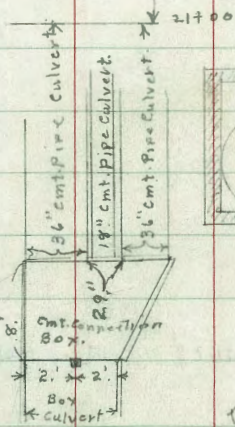 21+00
36" Cmt. Pipe Culvert
18" Cmt. Pipe Culvert.
36" Cmt. Pipe Culvert.
29"
8'
Cmt. Connection
Box.
2.' 2.'
Box
Culvert